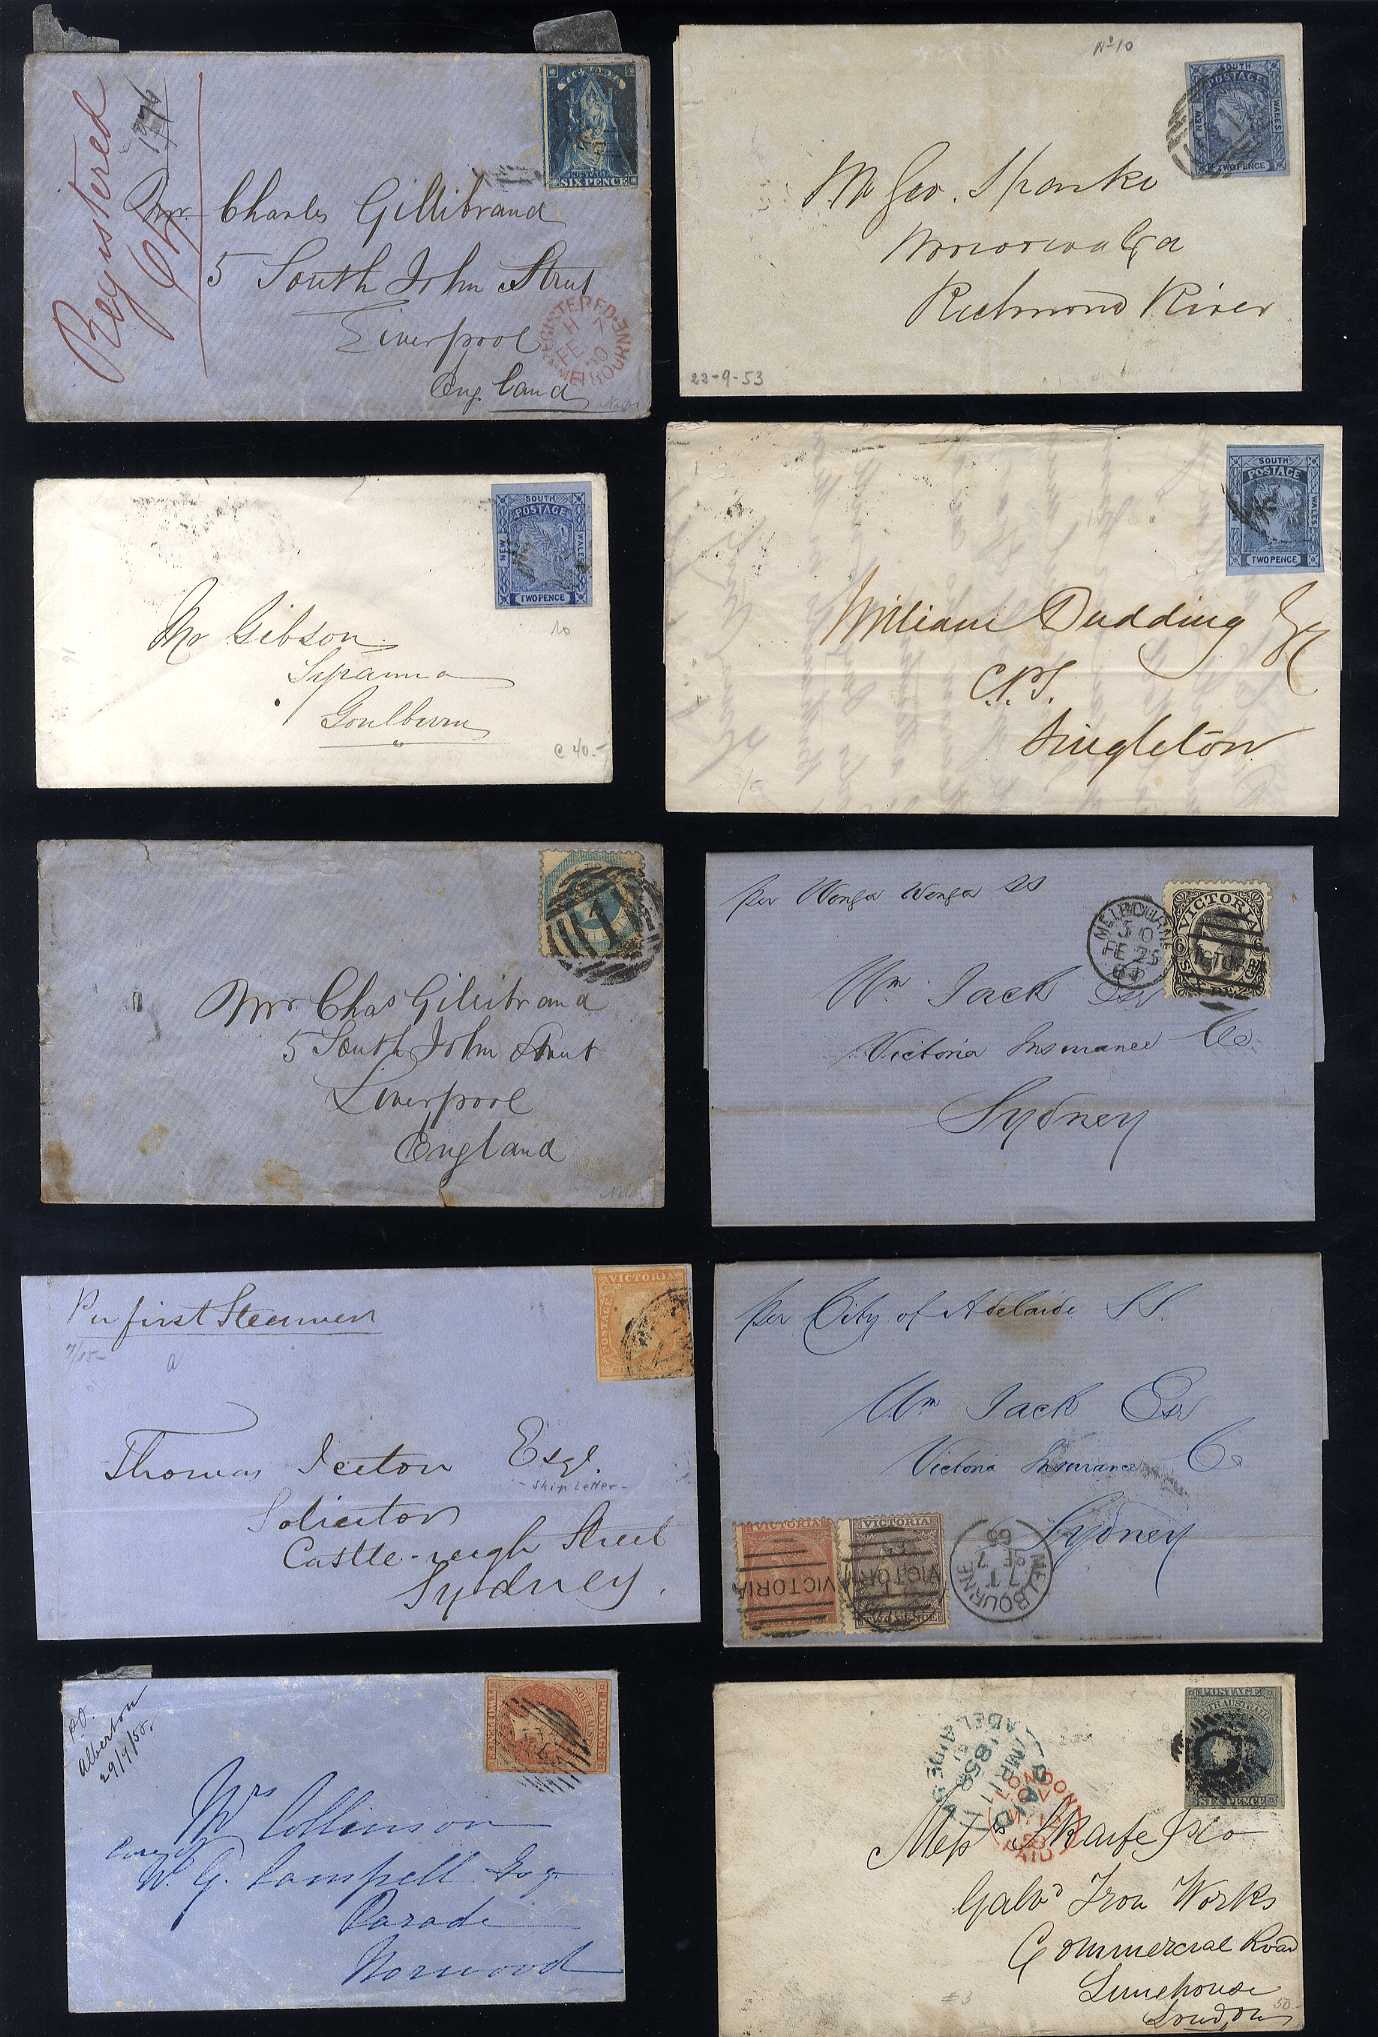 Registered
Mr. Charles Gillibrand
5 South John Street
Liverpool
England
VICTORIA
POSTAGE
SIX PENCE
REGISTERED MELBOURNE
No 10
SOUTH
POSTAGE
NEW
WALES
TWO PENCE
Mr Geo. Sparke
Richmond River
22-9-53
SOUTH
POSTAGE
NEW
WALES
TWO PENCE
Mr Gibson
Goulburn
C 40.-
SOUTH
POSTAGE
WALES
TWO PENCE
William Dudding Esq
C.P.S.
Singleton
1
Mr Chas Gillibrand
5 South John Street
Liverpool
England
per Wonga Wonga SS
MELBOURNE
FE 25
64
VICTORIA
Wm Jack Esq
Victoria Insurance Co.
Sydney
Per first Steamer
VICTORIA
POSTAGE
Thomas Iceton Esqr.
- Ship Letter -
Solicitor
Castle-reagh Street
Sydney.
per City of Adelaide SS.
Wm Jack Esq
Victoria Insurance Co
Sydney
VICTORIA
VICTORIA
VICTORIA
VICTORIA
MELBOURNE
7 T
SE 7
65
P.O.
Alberton
29/9/58.
Mrs Collinson
Care of
W. G. Campbell Esq
Parade
Norwood
ADELAIDE
MR 11
1858
PAID
LONDON
PAID
POSTAGE
SIX PENCE
Messrs Skaife & Co
Galvd Iron Works
Commercial Road
Limehouse
London
50-